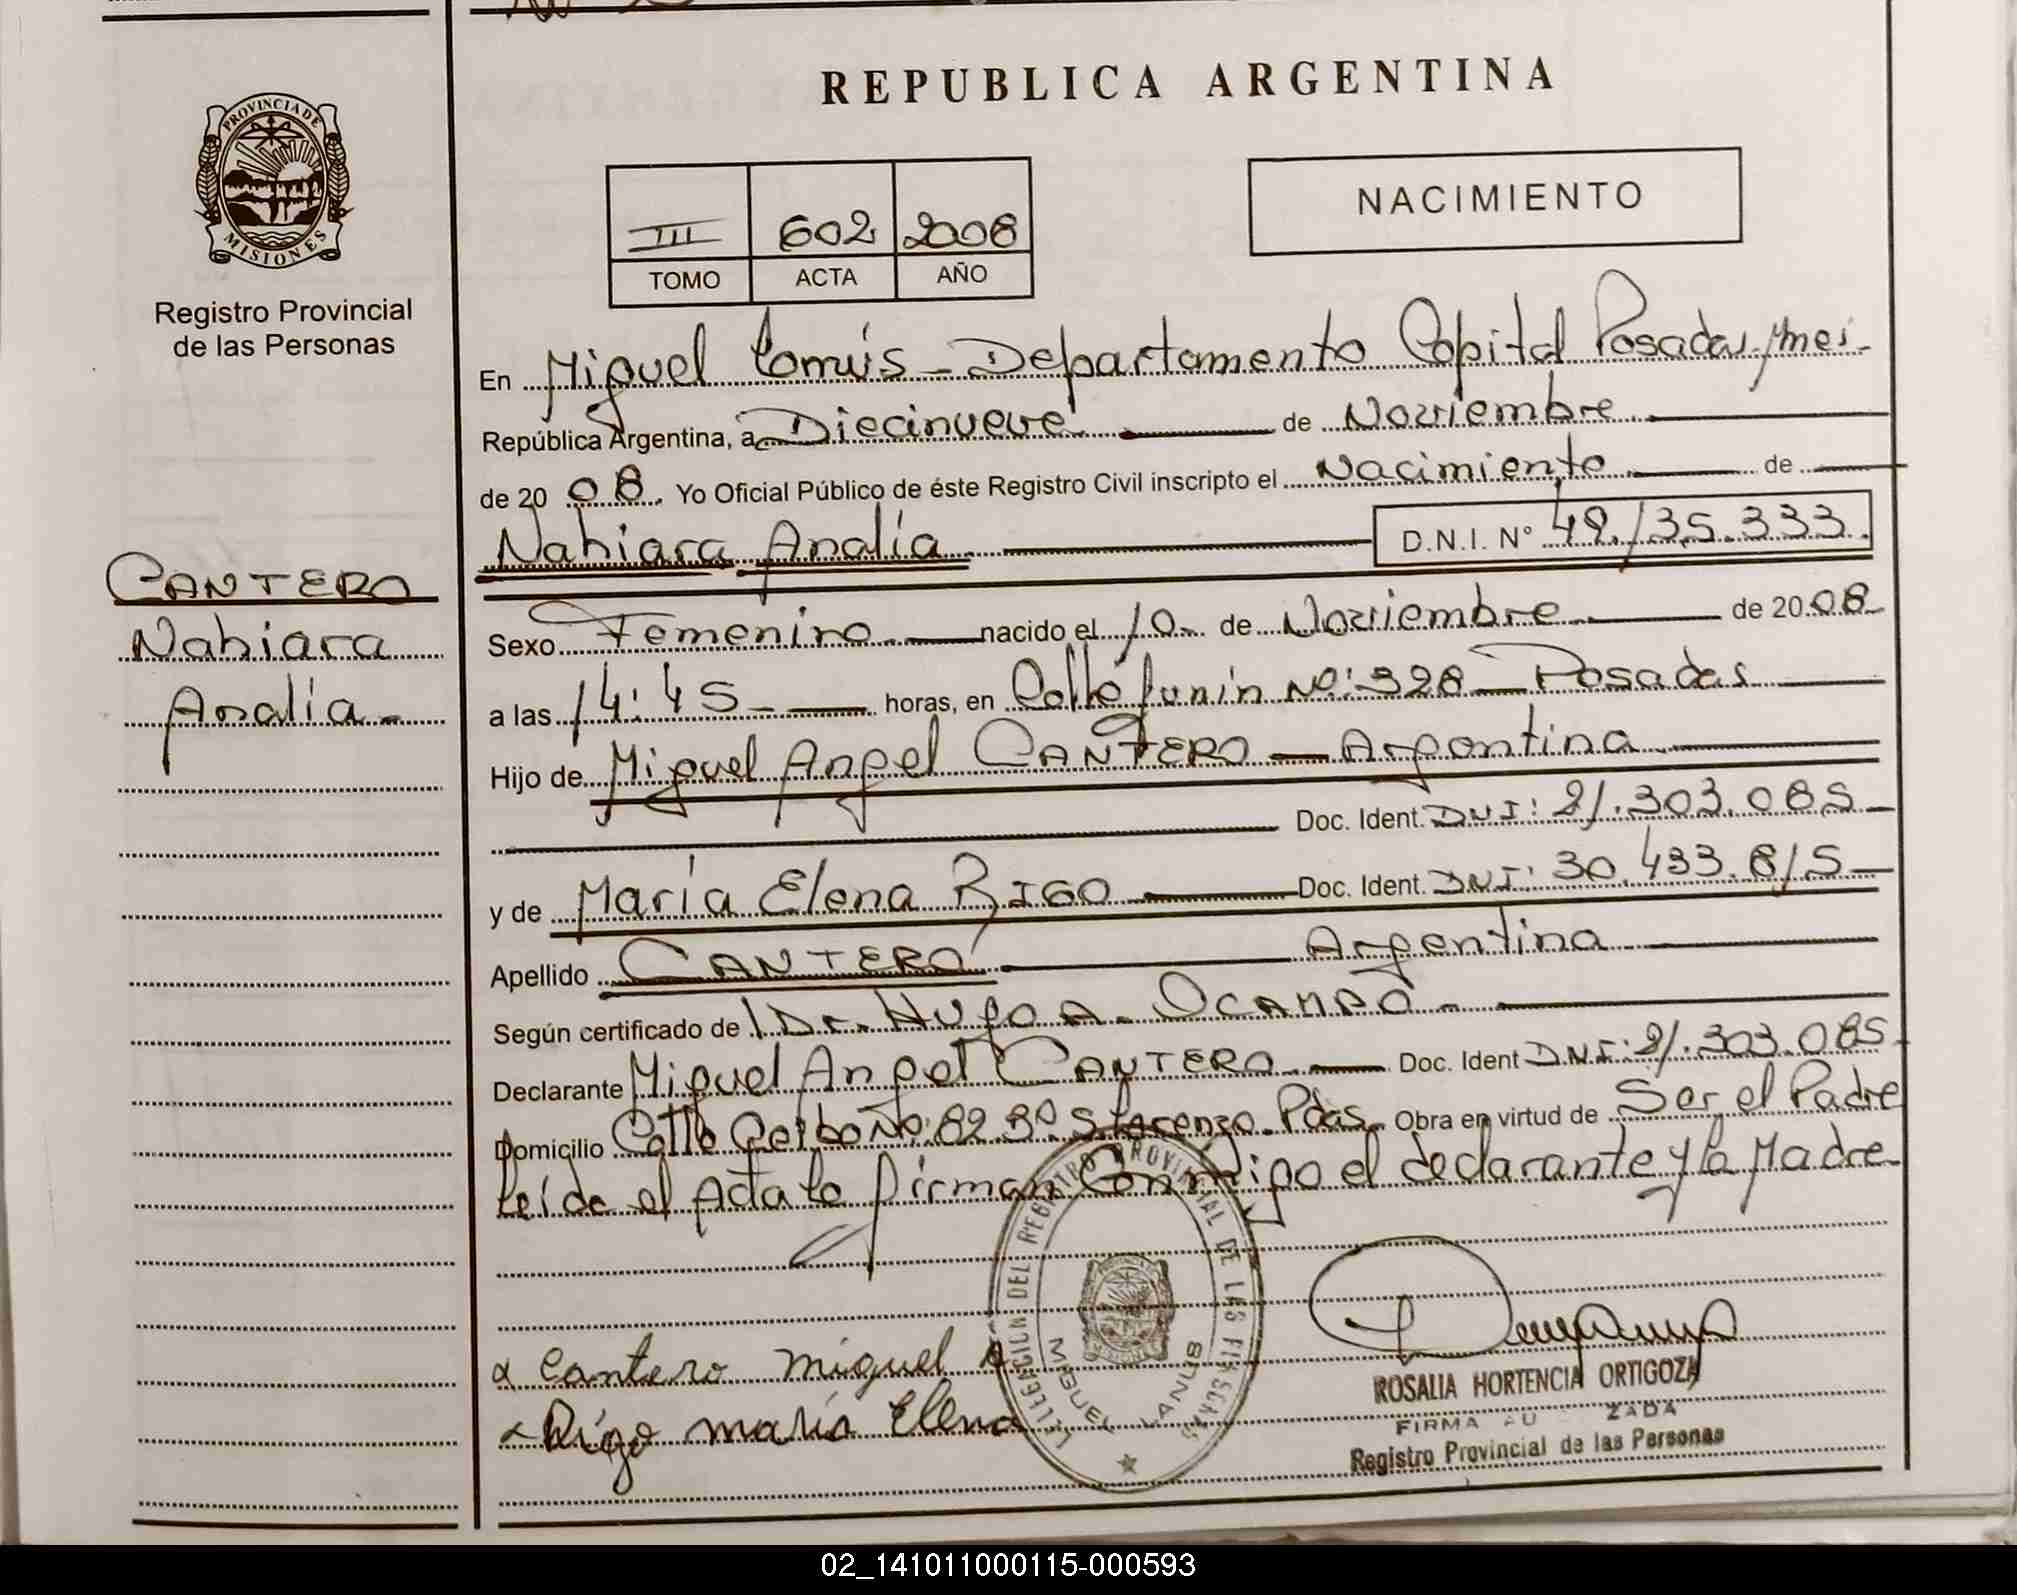 REPUBLICA ARGENTINA
PROVINCIA DE
MISIONES
Registro Provincial
de las Personas
III 602 2008
TOMO ACTA AÑO
NACIMIENTO
En Miguel Lanús - Departamento Capital Posadas, Mes.-
República Argentina, a Diecinueve de Noviembre
de 2008. Yo Oficial Público de éste Registro Civil inscripto el Nacimiento de
Nahiara Analía D.N.I. N° 49.135.333.
CANTERO
Nahiara
Analía -
Sexo Femenino nacido el 10 de Noviembre de 2008
a las 14:45 horas, en Calle Junín No: 328 - Posadas
Hijo de Miguel Angel CANTERO - Argentina
Doc. Ident. DNI: 21.303.085
y de María Elena RIGO Doc. Ident. DNI: 30.433.815
Apellido CANTERO Argentina
Según certificado de Dr. Hugo A. OCAMPO
Declarante Miguel Angel CANTERO Doc. Ident DNI: 21.303.085
Domicilio Calle No: 82 Bo S. Lorenzo - Pdas. Obra en virtud de Ser el Padre
Leída el Acta la firman Conmigo el declarante y la Madre
DEL REGISTRO PROVINCIAL DE LAS PERSONAS
MIGUEL LANUS
x Cantero Miguel A
x Rigo María Elena
ROSALIA HORTENCIA ORTIGOZA
FIRMA AU ZADA
Registro Provincial de las Personas
02_141011000115-000593